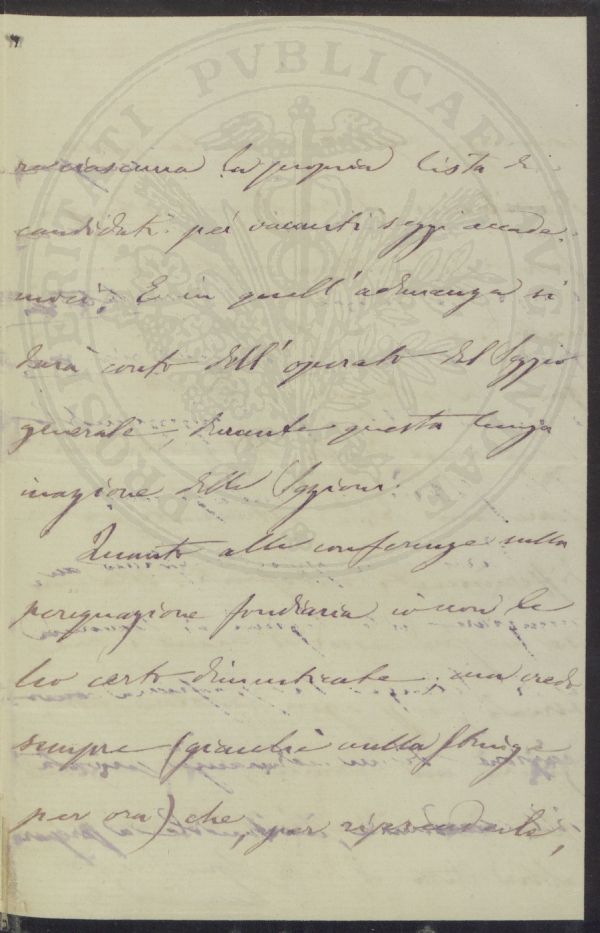 PROSPERITATI PVBLICAE AVGENDAE
ra ciascuna la propria lista di
candidati pei vacanti seggi accade-
mici. E in quell'adunanza si
darà conto dell'operato del Seggio
generale, durante questa lunga
inazione delle Sezioni.
Quanto alle conferenze sulla
perequazione fondiaria io non le
ho certo dimenticate; ma credo
sempre (giacchè nulla stringe
per ora) che, per riprenderle,